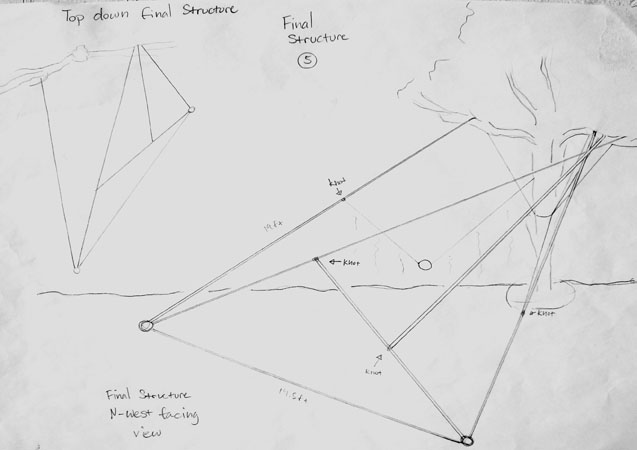 Top down final Structure
Final
Structure
5
Knot
19ft
Knot
Knot
Knot
19.5ft
Final Structure
N-west facing
view